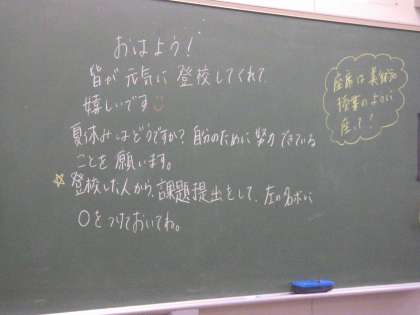 おはよう!
皆が元気に登校してくれて
嬉しいです
夏休みはどうですか?自分のために努力できている
ことを願います。
☆登校した人から、課題提出をして、左の名ボに
○をつけておいてね。
座席は美術の
授業のように
座って!